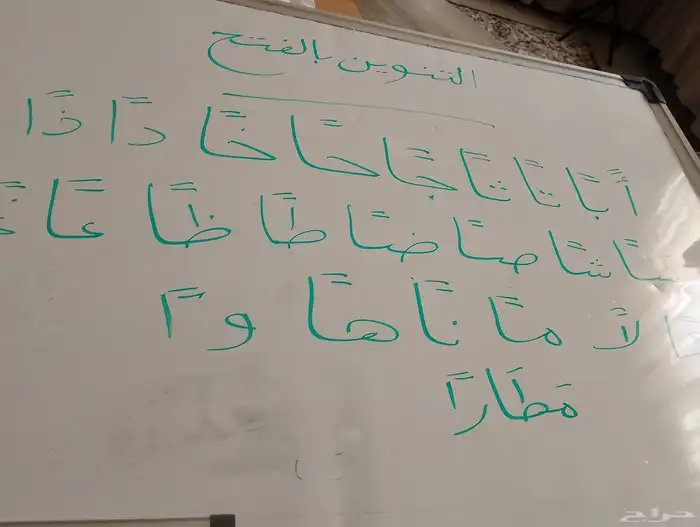 التنوين بالفتح
أً بًا تًا ثًا جًا حًا خًا دًا ذًا
سًا شًا صًا ضًا طًا ظًا عًا
لاً مًا نًا هًا وًا
مَطَارًا
حراج